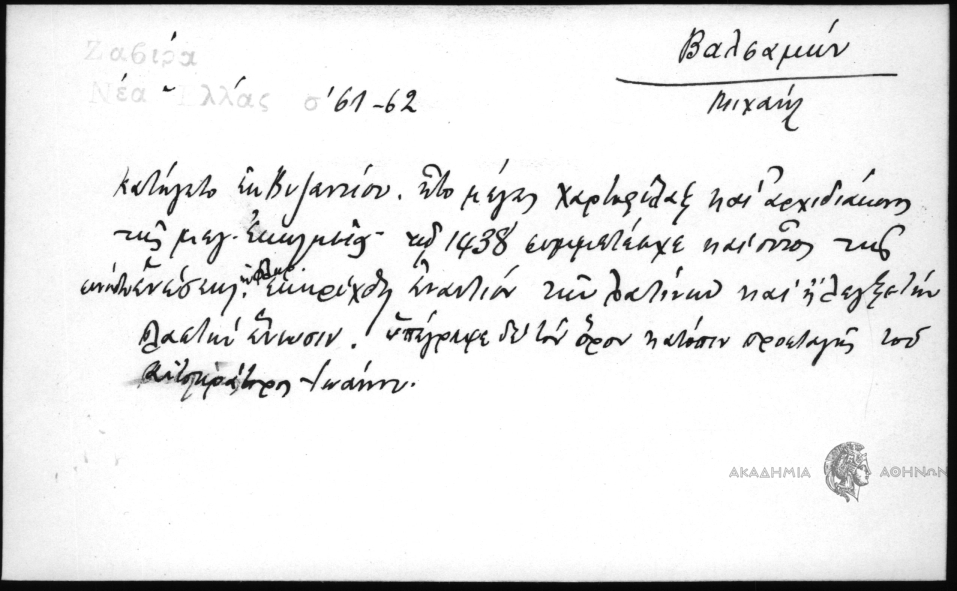 Ζαβίρα
Βαλσαμών
Νέα Ἑλλάς σ' 61-62
Μιχαήλ
Κατήγετο ἐκ Βυζαντίου. ἦτο μέγας χαρτοφύλαξ καὶ ἀρχιδιάκονος
τῆς μεγ. Ἐκκλησίας τῷ 1438 συμμετέσχε καὶ οὗτος τῆς
συνόδου ἐν Φλωρ. ἐκηρύχθη ἐναντίον τῶν Λατίνων καὶ ἤλεγξε τὴν
πλαστὴν ἕνωσιν. ὑπέγραψε δὲ τὸν ὅρον κατόπιν προσταγῆς τοῦ
αὐτοκράτορος Ἰωάννου.
ΑΚΑΔΗΜΙΑ ΑΘΗΝΩΝ